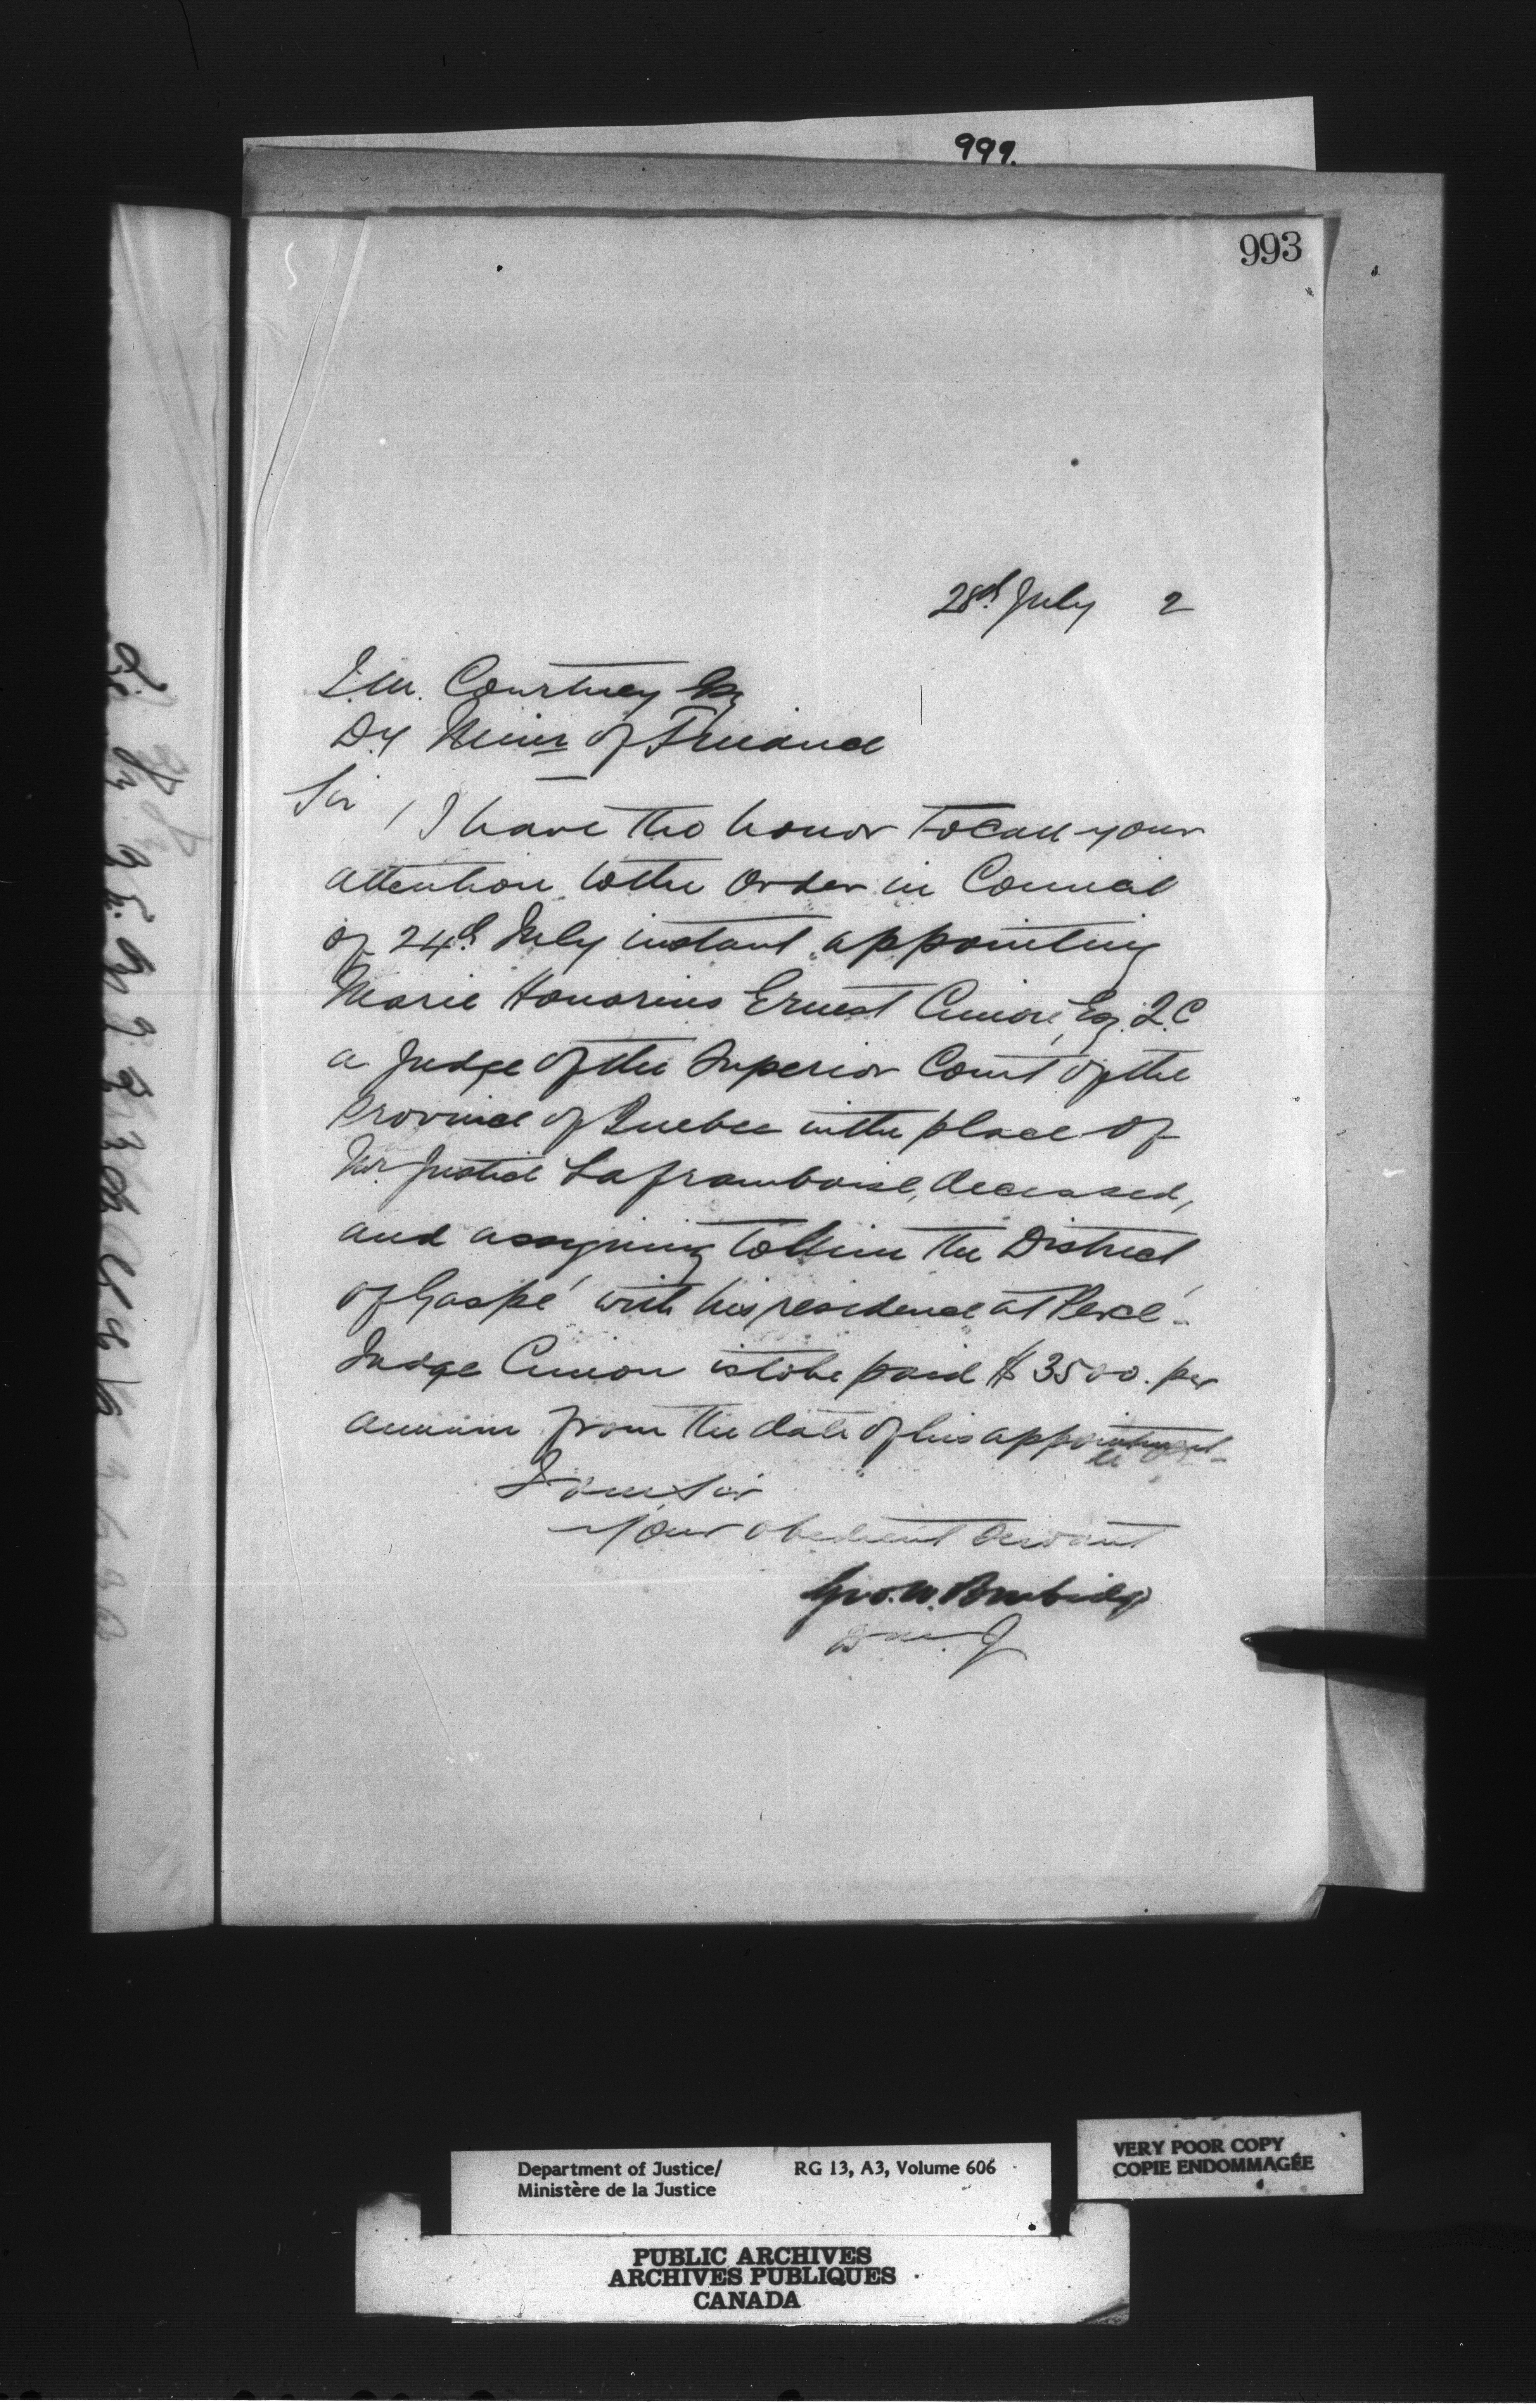 999.
993
28th July 2
J.M. Courtney Esq
Dy Minr of Finance
Sir, I have the honor to call your
attention to the Order in Council
of 24th July instant appointing
Marie Honorius Ernest Cimon, Esq. Q.C
a Judge of the Superior Court of the
Province of Quebec in the place of
Mr Justice Laframboise, deceased,
and assigning to him the District
of Gaspé with his residence at Percé -
Judge Cimon is to be paid $3500. per
annum from the date of his appointment -
I am Sir
Your obedient servant
Geo. W. Burbidge
D.M. J
Department of Justice/ RG 13, A3, Volume 606
Ministère de la Justice
VERY POOR COPY
COPIE ENDOMMAGÉE
PUBLIC ARCHIVES
ARCHIVES PUBLIQUES
CANADA